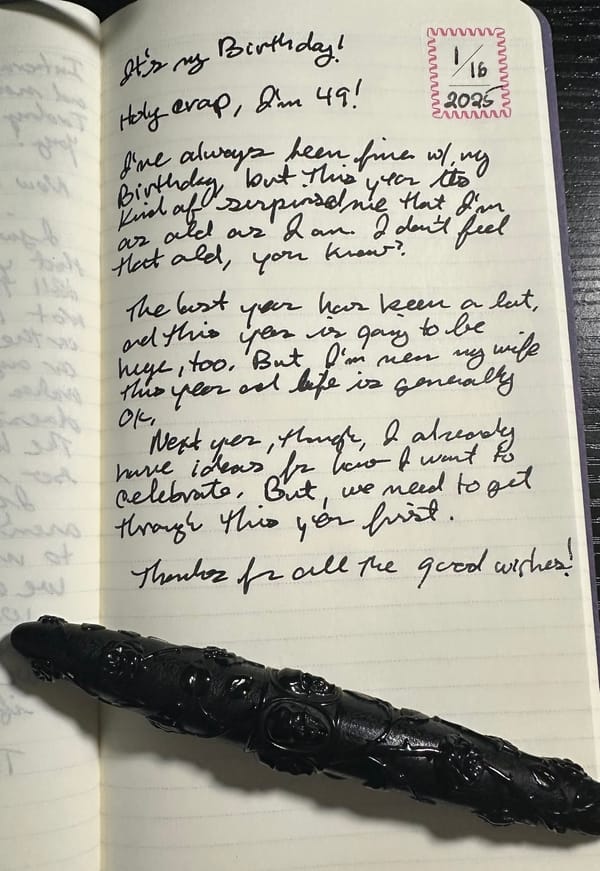 It's my Birthday!
1/16
2025
Holy crap, I'm 49!
I've always been fine w/ my
Birthday, but this year its
kind of surprised me that I'm
as old as I am. I don't feel
that old, you know?
The last year has been a lot,
and this year is going to be
huge, too. But I'm near my wife
this year and life is generally
OK.
Next year, though, I already
have ideas for how I want to
celebrate. But, we need to get
through this year first.
Thanks for all the good wishes!